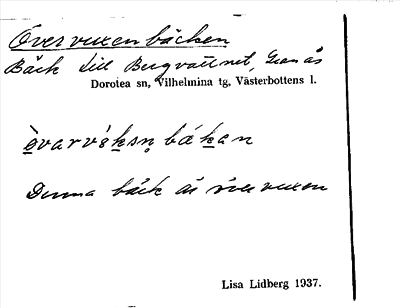 Övervuxenbäcken
Bäck till Bergvattnet, Granås
Dorotea sn, Vilhelmina tg, Västerbottens l.
Denna bäck är övervuxen
Lisa Lidberg 1937.